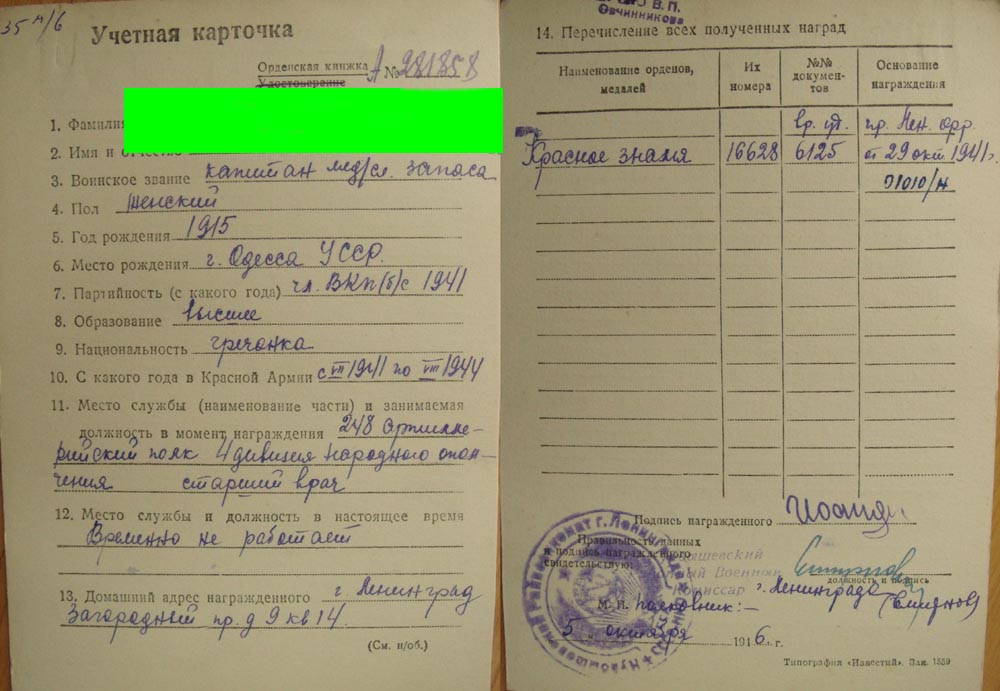 35 м/6
Учетная карточка
Орденская книжка
Удостоверение
А № 281858
1. Фамилия
2. Имя и отчество
3. Воинское звание капитан мед/сл. запаса
4. Пол женский
5. Год рождения 1915
6. Место рождения г. Одесса УССР.
7. Партийность (с какого года) чл. ВКП(б) с 1941
8. Образование высшее
9. Национальность гречанка
10. С какого года в Красной Армии с VII 1941 по VIII 1944
11. Место службы (наименование части) и занимаемая
должность в момент награждения 248 артилле-
рийский полк 4 дивизия народного опол-
чения старший врач
12. Место службы и должность в настоящее время
Временно не работает
13. Домашний адрес награжденного г. Ленинград
Загородный пр. д 9 кв 14.
(См. н/об.)
В.П.
Овчинникова
14. Перечисление всех полученных наград
Наименование орденов, медалей
Их номера
№№ документов
Основание награждения
вр. уд. пр. Лен. фр.
Красное знамя 16628 6125 от 29 окт 1941г.
01010/н
Подпись награжденного
Правильность данных
и подпись награжденного
свидетельствую:
Военный
Комиссар
должность и подпись
г. Ленинграда
М. П. полковник:- (Смирнов)
5 октября 1946 г.
Типография «Известий». Зак. 1559